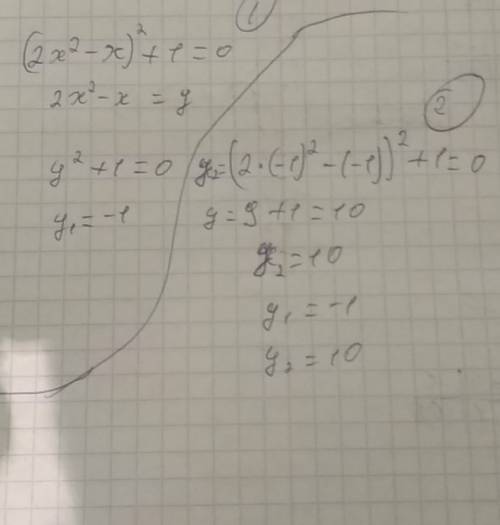 1
(2x²-x)²+1=0
2x²-x = y
y²+1=0
y₁=-1
2
y₂=(2·(-1)²-(-1))²+1=0
y=9+1=10
y₂=10
y₁=-1
y₂=10